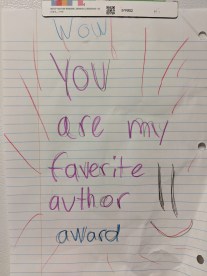 wow
You
are my
faverite
author
award